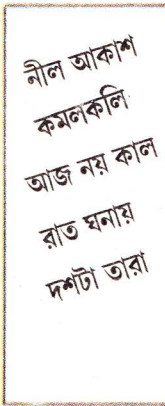 নীল আকাশ
কমলকলি
আজ নয় কাল
রাত ঘনায়
দশটা তারা